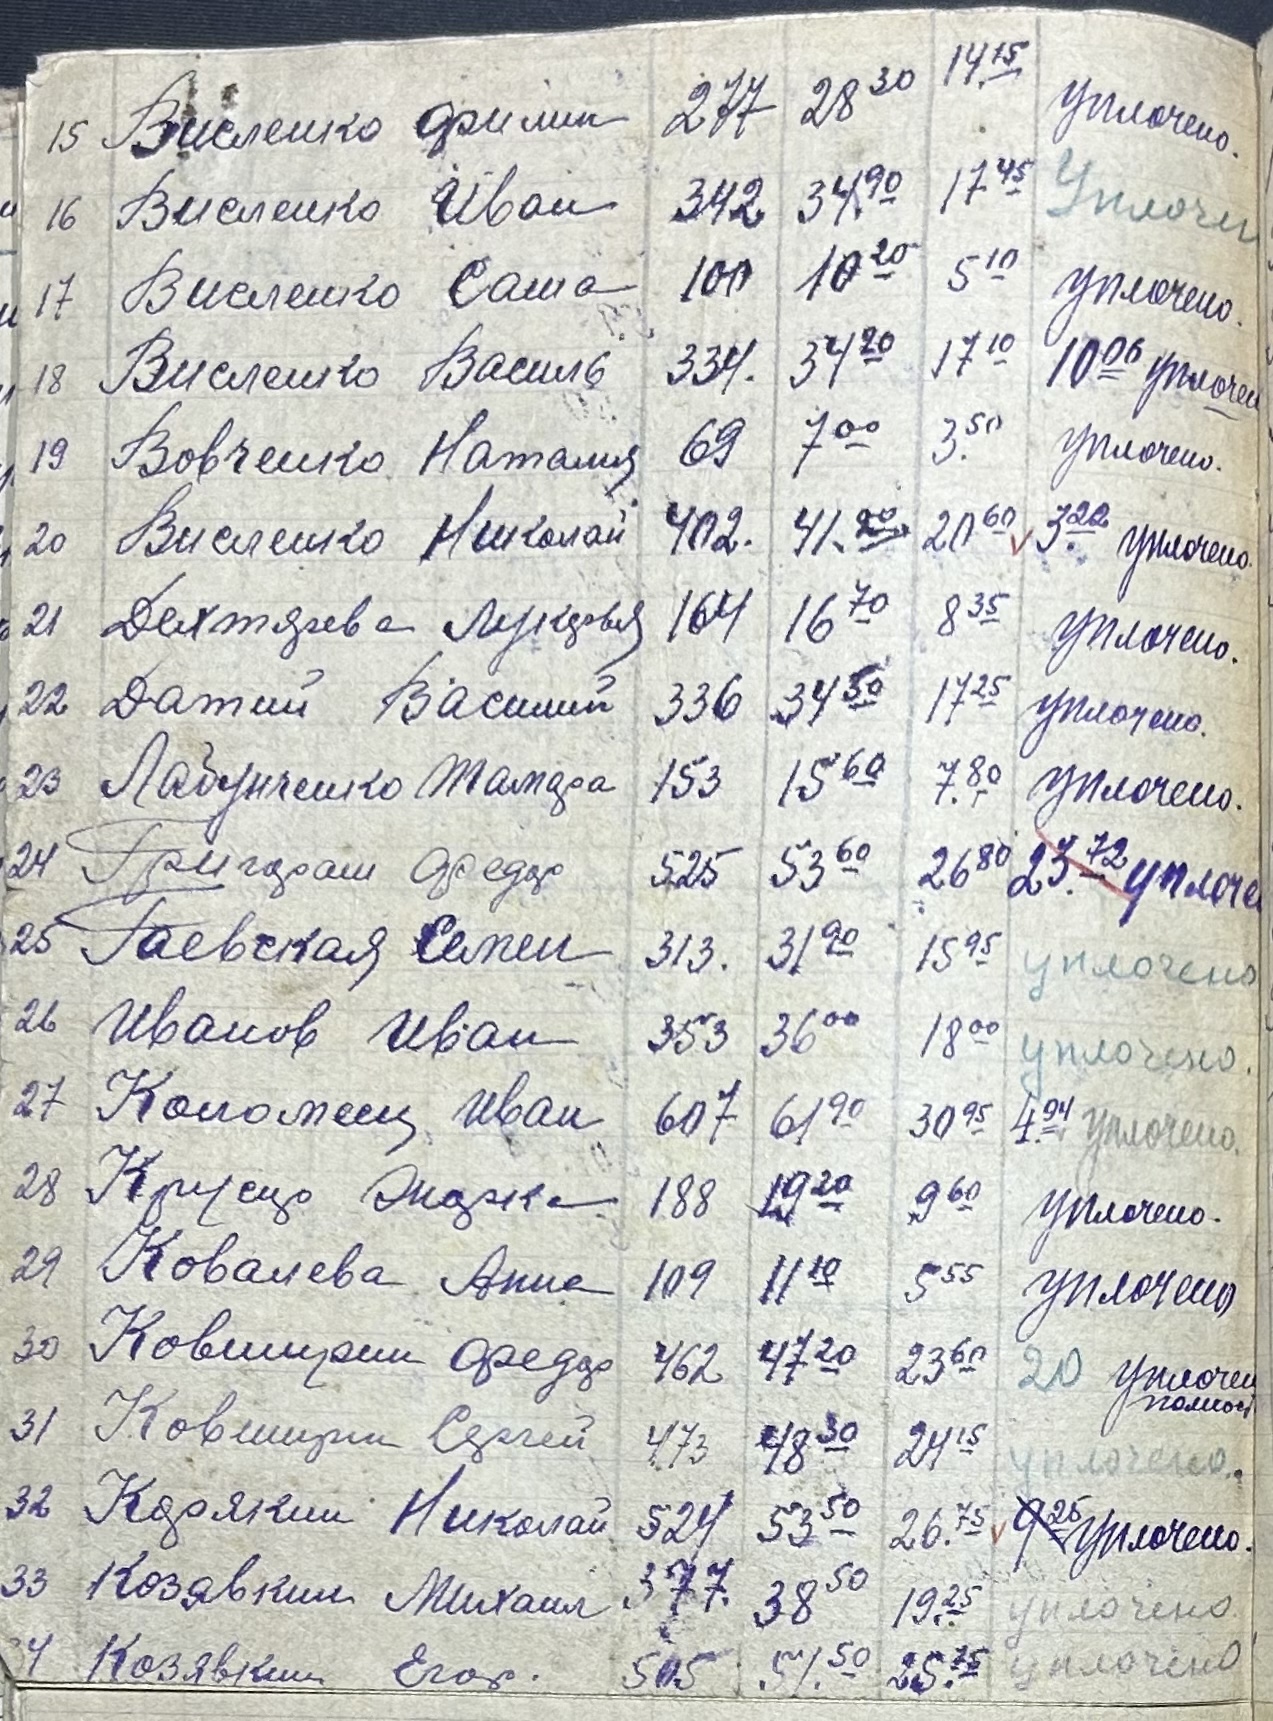 15 Висленко Филип 277 28 30 14.15 уплочено.
16 Висленко Иван 342 34.90 17 45 Уплочен
17 Висленко Саша 100 10 20 5 10 уплочено.
18 Висленко Василь 334. 34 20 17 10 10 06 уплочен
19 Вовченко Наталия 69 7 00 3.50 уплочено.
20 Висленко Николай 402. 41.20 20 60 3.22 уплочено.
21 Дехтярева 164 16 70 8 35 уплочено.
22 Датий Василий 336 34 50 17 25 уплочено.
23 Лабунченко Тамара 153 15 60 7.80 уплочено.
24 Григораш Федор 525 53 60 26 80 23.72 уплоче
25 Гаевская Семен 313. 31 90 15 95 уплочено
26 Иванов Иван 353 36 00 18 00 уплочено.
27 Коломеец Иван 607 61 90 30 95 4.94 уплочено.
28 188 19 20 9 60 уплочено.
29 Ковалева Анна 109 11 10 5 55 уплочено
30 Ковширин Федор 462 47 20 23 60 20 уплочен
полност
31 Ковширин Сергей 473 48 30 24 15 уплочено.
32 Корякин Николай 524 53 50 26.75 9 25 уплочено.
33 Козявкин Михаил 377. 38 50 19.25 уплочено
4 Козявкин Егор. 505 51.50 25.75 уплочено